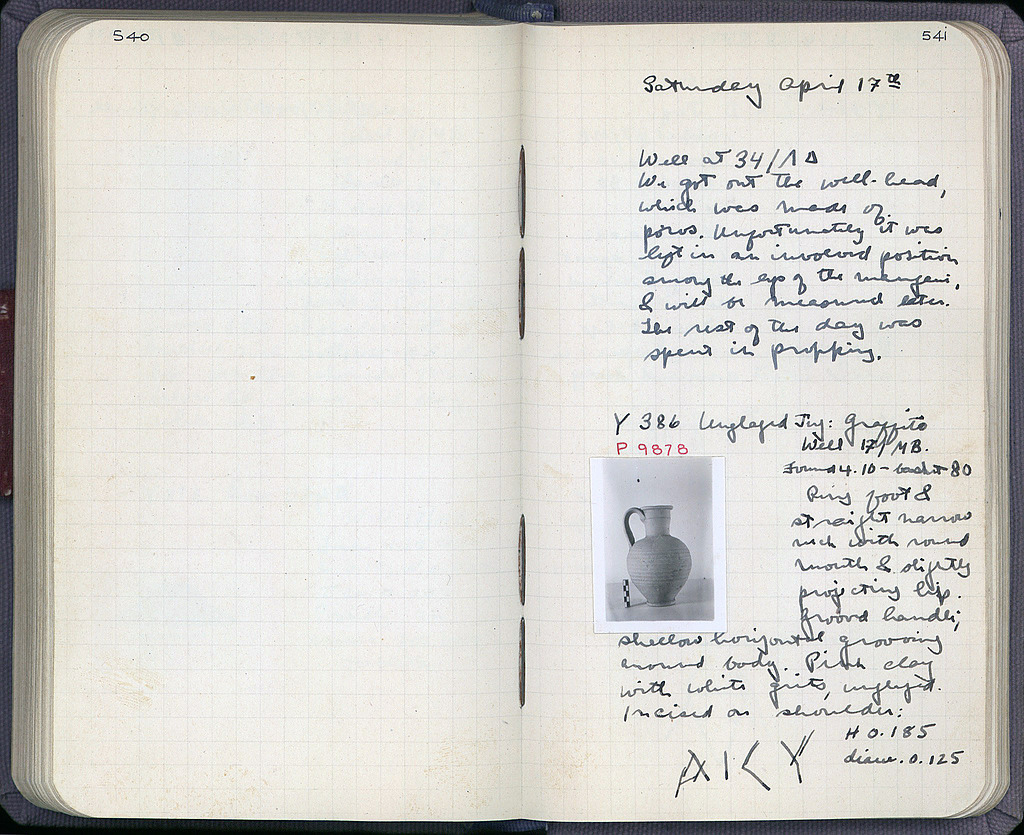 540
541
Saturday April 17th
Well at 34/ΛΔ
We got out the well-head,
which was made of
poros. Unfortunately it was
left in an involved position
among the legs of the mangani,
& will be measured later.
The rest of the day was
spent in propping.
Y 386 Unglazed Jug: Graffito
P 9878
Well 17/MB.
Found 4.10 - basket 80
Ring foot &
straight narrow
neck with round
mouth & slightly
projecting lip.
Grooved handle;
shallow horizontal grooving
around body. Pink clay
with white grits, unglazed.
Incised on shoulder:
H 0.185
diam. 0.125